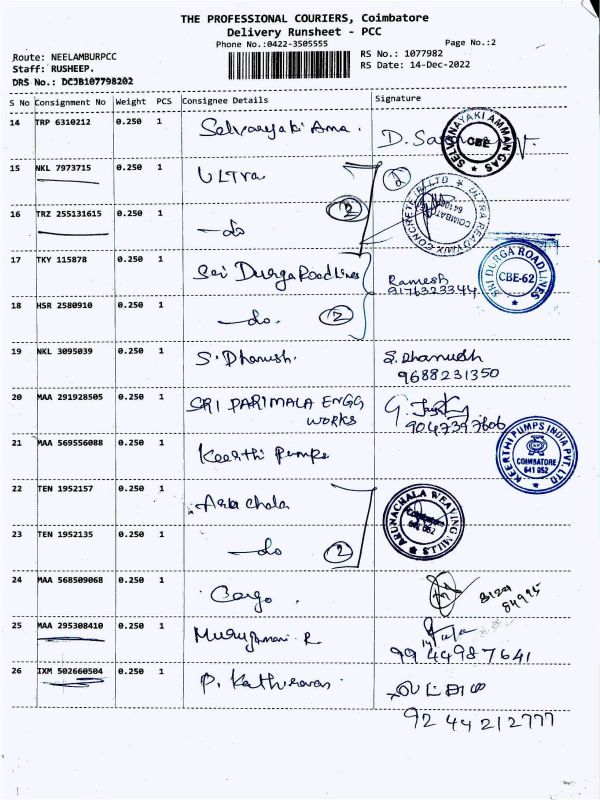 THE PROFESSIONAL COURIERS, Coimbatore
Delivery Runsheet - PCC
Phone No.:0422-3505555
Page No.:2
Route: NEELAMBURPCC
RS No.: 1077982
Staff: RUSHEEP.
RS Date: 14-Dec-2022
DRS No.: DCJB107798202
S No Consignment No Weight PCS Consignee Details Signature
14 TRP 6310212 0.250 1
SELVANAYAKI AMMAN GAS CBE
15 NKL 7973715 0.250 1 ULTra 2
16 TRZ 255131615 0.250 1 -do 2
ULTRA READYMIX CONCRETE (P) LTD COIMBATORE
17 TKY 115878 0.250 1 Sri Durga Road Lines Ramesh
SRI DURGA ROADLINES CBE-62
18 HSR 2580910 0.250 1 -do. 2
19 NKL 3095039 0.250 1 S. Dhanush. S. Dhanush
9688231350
20 MAA 291928505 0.250 1 SRI PARIMALA ENGG
WORKS
9047397606
21 MAA 569556088 0.250 1 Keerthi Pumps
KEERTHI PUMPS INDIA PVT. LTD COIMBATORE 641 062
22 TEN 1952157 0.250 1
ARUNACHALA WEAVING MILLS
23 TEN 1952135 0.250 1 -do 2
24 MAA 568509068 0.250 1 Cargo.
84995
25 MAA 295308410 0.250 1
9944987641
26 IXM 502660504 0.250 1
9244212777